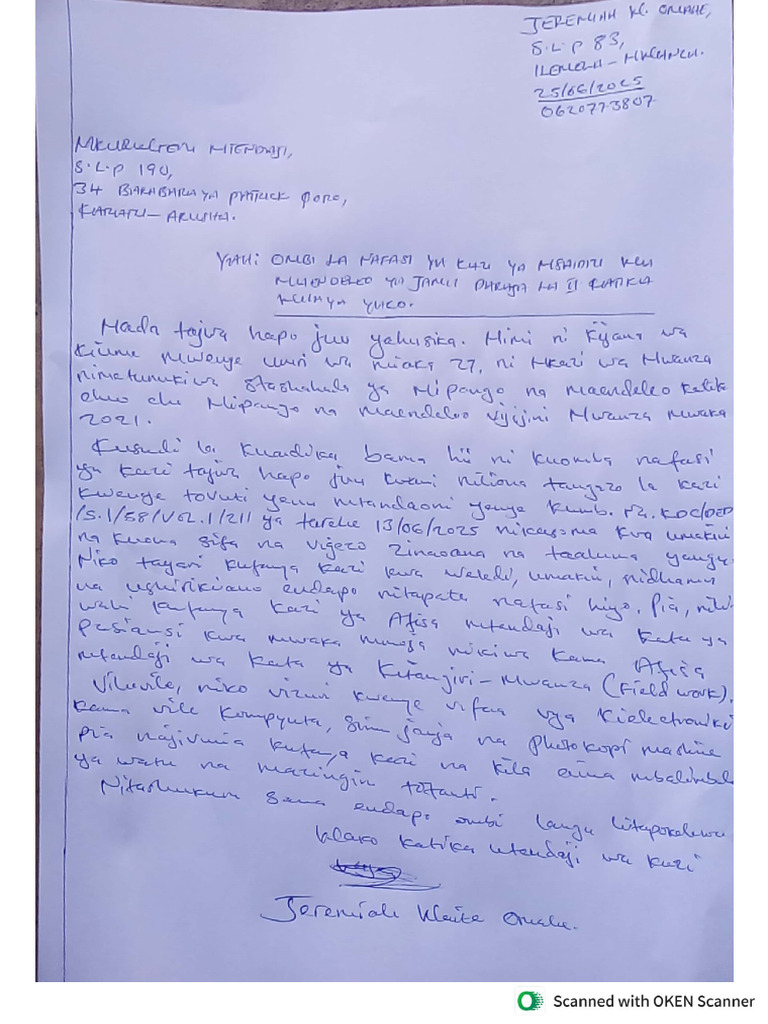 JEREMIAH W. OMAHE,
S.L.P 83,
ILEMELA - MWANZA.
25/06/2025
0620773807
MKURUGENZI MTENDAJI,
S.L.P 190,
34 BARABARA YA PATRICK
KARATU - ARUSHA.
YAH: OMBI LA NAFASI YA KAZI YA MSAIDIZI WA
MAENDELEO YA JAMII DARAJA LA II KATIKA
WILAYA YAKO.
Mada tajwa hapo juu yahusika. Mimi ni kijana wa
kiume mwenye umri wa miaka 27, ni mkazi wa Mwanza
nimetunukiwa stashahada ya Mipango na maendeleo katika
chuo cha Mipango na maendeleo vijijini Mwanza mwaka
2021.
Kusudi la kuandika barua hii ni kuomba nafasi
ya kazi tajwa hapo juu kwani niliona tangazo la kazi
kwenye tovuti yenu mtandaoni yenye kumb. Na. KDC/DED
/S.1/58/VOL.1/211 ya tarehe 13/06/2025 nikasoma kwa umakini
na kuona sifa na vigezo zinaoana na taaluma yangu.
Niko tayari kufanya kazi kwa weledi, umakini, nidhamu
na ushirikiano endapo nitapata nafasi hiyo. Pia, nili-
wahi kufanya kazi ya Afisa mtendaji wa kata ya
Pasiansi kwa mwaka mmoja nikiwa kama Afisa
mtendaji wa kata ya Kitangiri - Mwanza (Field work).
Vilevile, niko vizuri kwenye vifaa vya kielectroniki
kama vile kompyuta, simu janja na photokopi mashine
pia najivunia kufanya kazi na kila aina mbalimbali
ya watu na mazingira tofauti.
Nitashukuru sana endapo ombi langu litapokelewa
Wako katika utendaji wa kazi
Jeremiah Omahe.
Scanned with OKEN Scanner